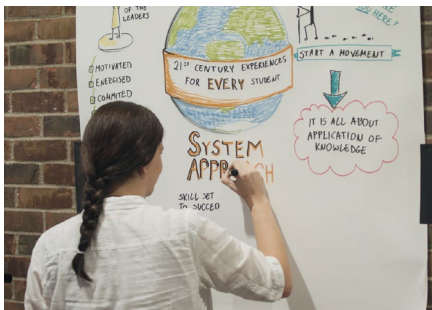 OF THE
LEADERS
MOTIVATED
ENERGISED
COMMITED
21ST CENTURY EXPERIENCES
FOR EVERY STUDENT
SYSTEM
APPROACH
SKILL SET
TO SUCCED
YOU HERE?
START A MOVEMENT
IT IS ALL ABOUT
APPLICATION OF
KNOWLEDGE